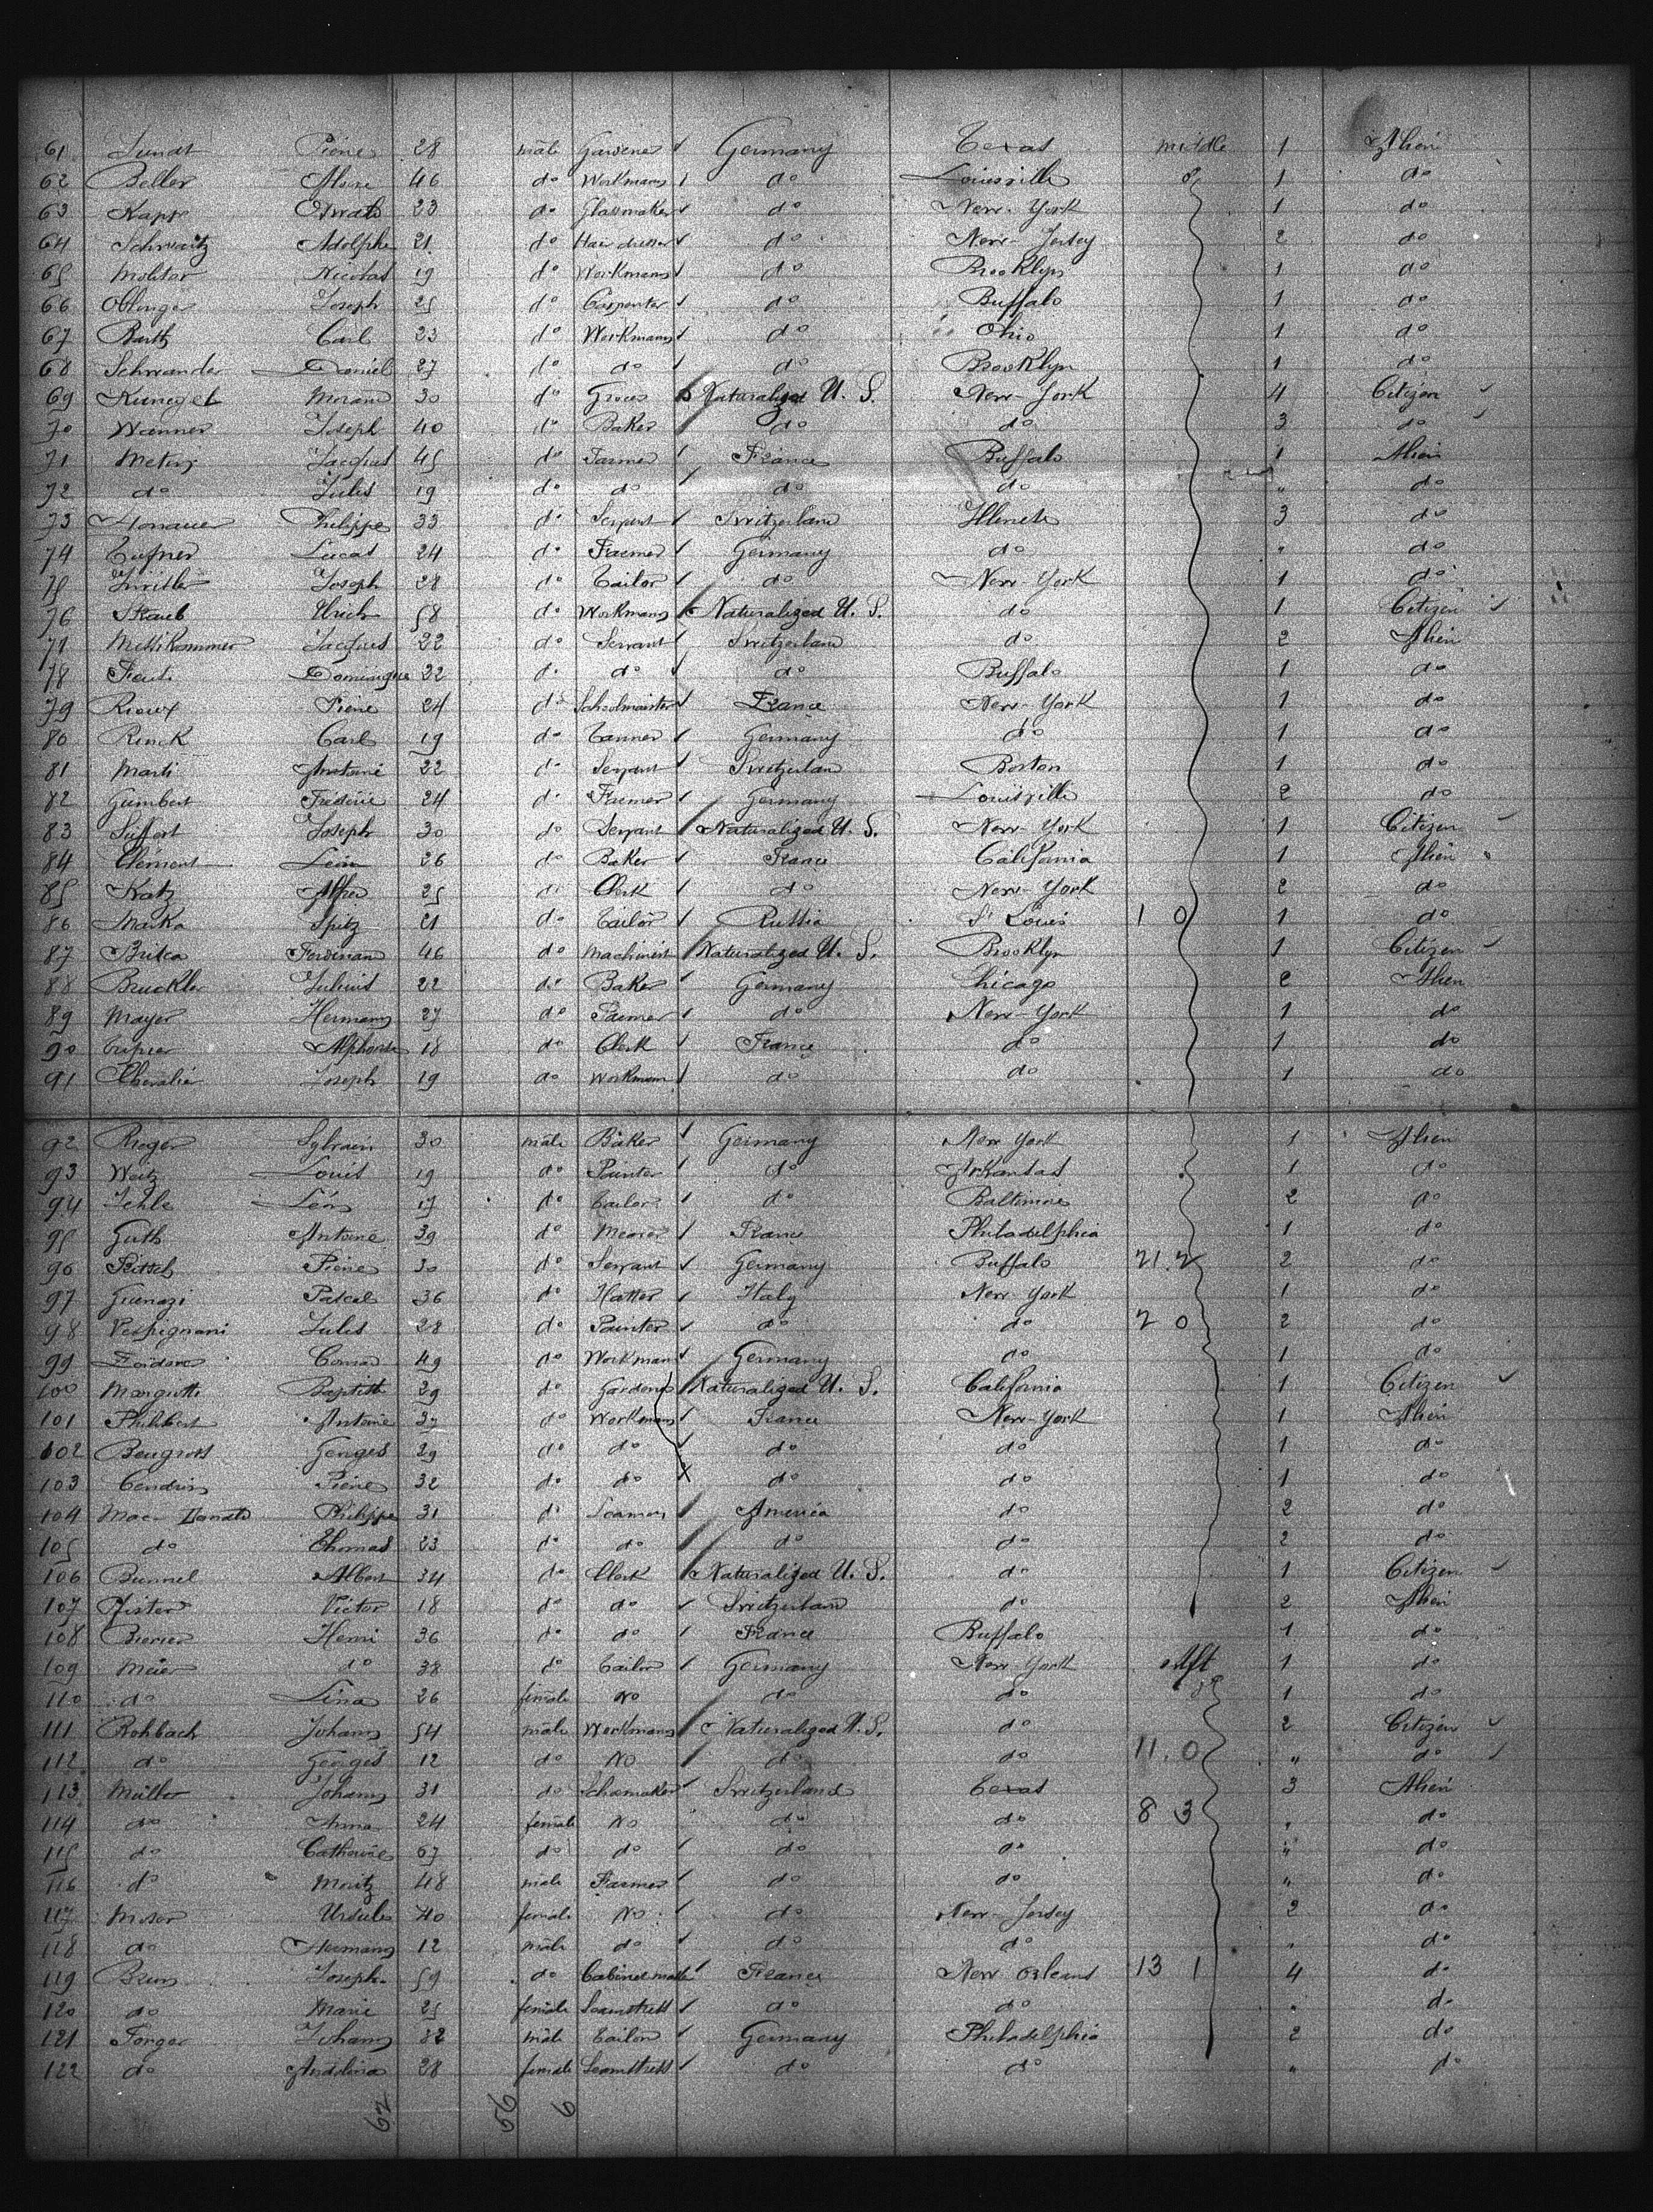 61 Lundt Pierre 28 male Gardener Germany Texas middle 1 Alien
62 Beller 46 do Workmann do Louisville do 1 do
63 Kapp Oswald 23 do Glassmaker do New-York 1 do
64 Schwartz Adolphe 21 do Hair dresser do New-Jersey 2 do
65 Molitor Nicolas 19 do Workmann do Brooklyn 1 do
66 Oblinger Joseph 25 do Carpenter do Buffalo 1 do
67 Barth Carl 23 do Workmann do Ohio 1 do
68 Schwander Daniel 27 do do do Brooklyn 1 do
69 Kunegel Morand 30 do Grocer Naturalized U. S. New-York 4 Citizen
70 Wanner Joseph 40 do Baker do do 3 do
71 Jacques 45 do Farmer France Buffalo 1 Alien
72 do Jules 19 do do do do " do
73 Philippe 33 do Servant Switzerland 3 do
74 Lucas 24 do Farmer Germany do " do
75 Joseph 28 do Tailor do New-York 1 do
76 Staub Ulrich 58 do Workmann Naturalized U. S. do 1 Citizen
77 Mettikommer Jacques 22 do Servant Switzerland do 2 Alien
78 Dominique 22 do do do Buffalo 1 do
79 Rioux Pierre 24 do Schoolmaister France New-York 1 do
80 Rinck Carl 19 do Tanner Germany do 1 do
81 Marti Antoine 22 do Servant Switzerland Boston 1 do
82 Gumbert Frédéric 24 do Farmer Germany Louisville 2 do
83 Suffert Joseph 30 do Servant Naturalized U. S. New-York 1 Citizen
84 Clément Léon 26 do Baker France California 1 Alien
85 Katz Alfred 25 do Clerk do New-York 2 do
86 Marka Spitz 21 do Tailor Russia St Louis 1 0 1 do
87 Ferdinand 46 do Machinist Naturalized U. S. Brooklyn 1 Citizen
88 Bruckler Julius 22 do Baker Germany Chicago 2 Alien
89 Mayer Hermann 27 do Farmer do New-York 1 do
90 Alphonse 18 do Clerk France do 1 do
91 Chevalier Joseph 19 do Workmann do do 1 do
92 Rieger Sylvain 30 male Baker Germany New York 1 Alien
93 Weitz Louis 19 do Painter do Arkansas 1 do
94 Jehle Léon 17 do Tailor do Baltimore 2 do
95 Guth Antoine 39 do France Philadelphia 1 do
96 Pierre 30 do Servant Germany Buffalo 21.2 2 do
97 Pascal 36 do Hatter Italy New York 1 do
98 Vespignani Jules 28 do Painter do do 2 0 2 do
99 Conrad 49 do Workmann Germany do 1 do
100 Margiotti Baptiste 29 do Gardener Naturalized U. S. California 1 Citizen
101 Philibert Antoine 37 do Workmann France New-York 1 Alien
102 Beugnot Georges 29 do do do do 1 do
103 Cendrin Pierre 32 do do do do 1 do
104 Mac-Donald Philippe 31 do Seaman America do 2 do
105 do Thomas 23 do do do do 2 do
106 Bunnel Albert 34 do Clerk Naturalized U. S. do 1 Citizen
107 Pfister Victor 18 do do Switzerland do 2 Alien
108 Henri 36 do do France Buffalo 1 do
109 Meier do 38 do Tailor Germany New York Aft 1 do
110 do Lina 26 female No do do do 1 do
111 Rohbach Johann 54 male Workmann Naturalized U. S. do 2 Citizen
112 do Georges 12 do No do do 11.0 " do
113 Müller Johann 31 do Schomaker Switzerland Texas 3 Alien
114 do Anna 24 female No do do 8 3 " do
115 do Catherine 67 do do do do " do
116 do Moritz 48 male Farmer do do " do
117 Moser Ursule 40 female No do New-Jersey 2 do
118 do Hermann 12 male do do do " do
119 Brun Joseph 59 do Cabinet make France New Orleans 13 1 4 do
120 do Marie 25 female Seamstress do do " do
121 Forger Johann 32 male Tailor Germany Philadelphia 2 do
122 do 28 female Seamstress do do " do
62 56 6